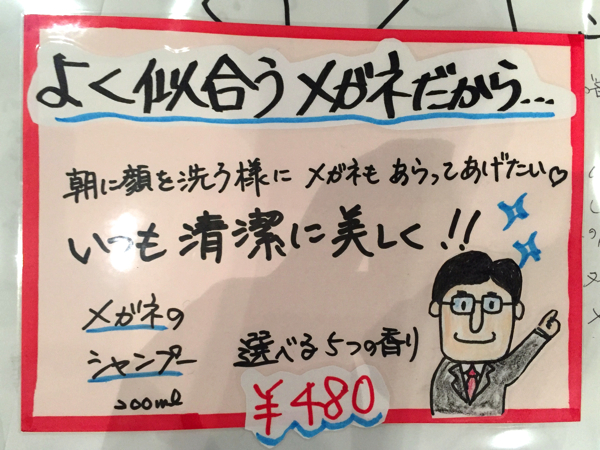 よく似合うメガネだから...
朝に顔を洗う様に メガネも あらってあげたい♡
いつも清潔に美しく!!
メガネの
シャンプー
200ml
選べる5つの香り
¥480